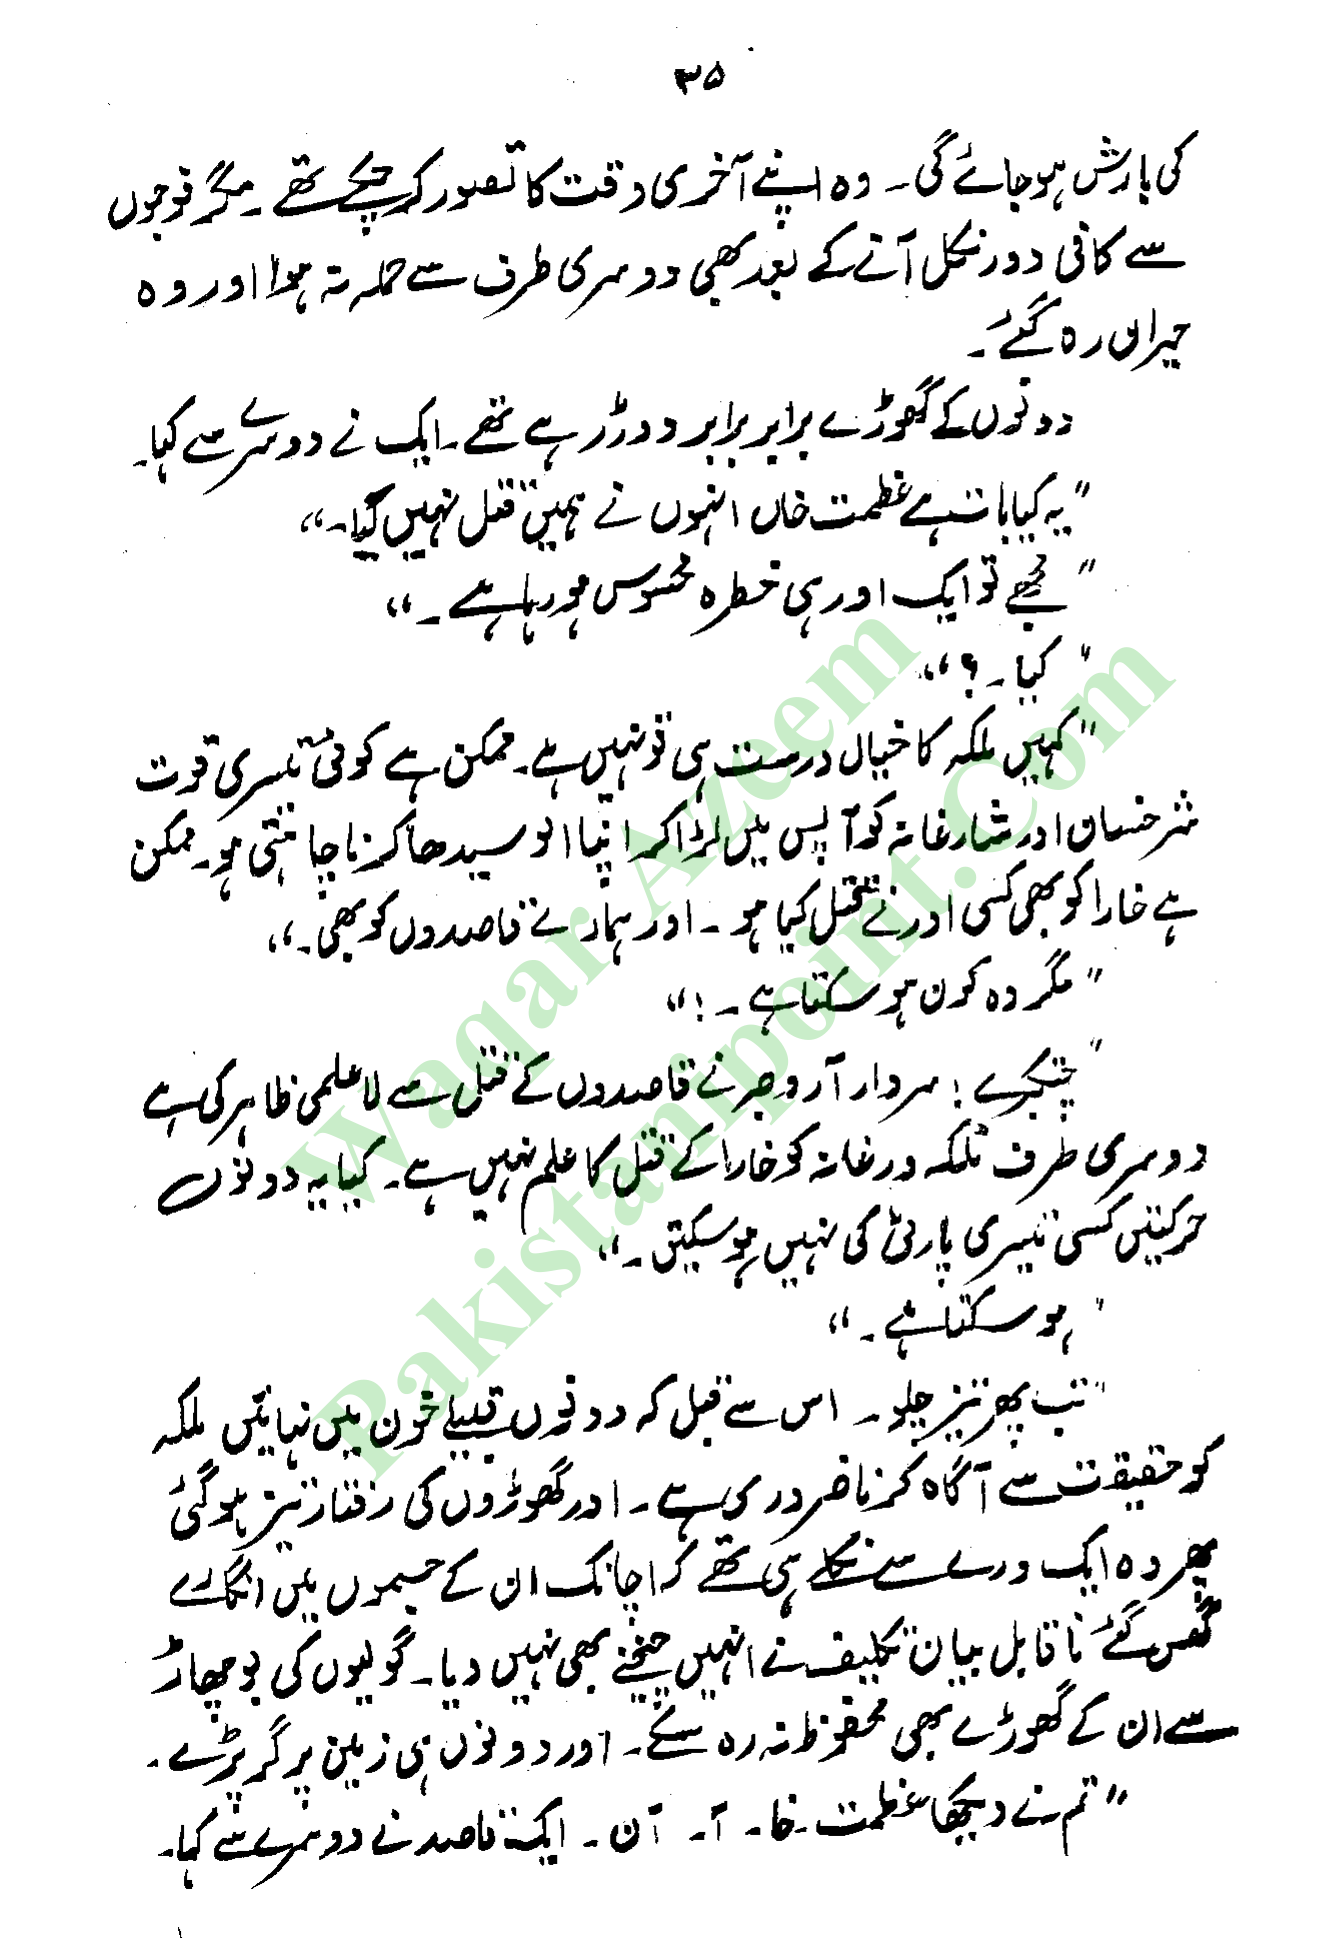 ۳۵
کی بارش ہو جائے گی۔ وہ اپنے آخری وقت کا تصور کر چکے تھے۔ مگر فوجوں
سے کافی دور نکل آنے کے بعد بھی دوسری طرف سے حملہ نہ ہوا اور وہ
حیران رہ گئے۔
دونوں کے گھوڑے برابر برابر دوڑ رہے تھے۔ ایک نے دوسرے سے کہا۔
”یہ کیا بات ہے عظمت خاں انہوں نے ہمیں قتل نہیں کیا۔“
”مجھے تو ایک اور ہی خطرہ محسوس ہو رہا ہے۔“
”کیا۔؟“
”کہیں ملکہ کا خیال درست ہی تو نہیں ہے۔ ممکن ہے کوئی تیسری قوت
شرخسان اور شارغانہ کو آپس میں لڑا کر اپنا الو سیدھا کرنا چاہتی ہو۔ ممکن
ہے خارا کو بھی کسی اور نے قتل کیا ہو۔ اور ہمارے قاصدوں کو بھی۔“
”مگر وہ کون ہو سکتا ہے۔!“
”چتکبرے! سردار آروجر نے قاصدوں کے قتل سے لاعلمی ظاہر کی ہے
دوسری طرف ملکہ ورغانہ کو خارا کے قتل کا علم نہیں ہے۔ کیا یہ دونوں
حرکتیں کسی تیسری پارٹی کی نہیں ہو سکتیں۔“
”ہو سکتا ہے۔“
”تب پھر تیز چلو۔ اس سے قبل کہ دونوں قبیلے خون میں نہائیں ملکہ
کو حقیقت سے آگاہ کرنا ضروری ہے۔ اور گھوڑوں کی رفتار تیز ہو گئی
پھر وہ ایک درے سے نکلے ہی تھے کہ اچانک ان کے جسموں میں انگارے
گھس گئے ناقابل بیان تکلیف نے انہیں چیخنے بھی نہیں دیا۔ گولیوں کی بوچھاڑ
سے ان کے گھوڑے بھی محفوظ نہ رہ سکے۔ اور دونوں ہی زمین پر گر پڑے۔
”تم نے دیکھا عظمت۔ خا۔ آ۔ آن۔ ایک قاصد نے دوسرے سے کہا۔
Waqar Azeem
Pakistanipoint.Com